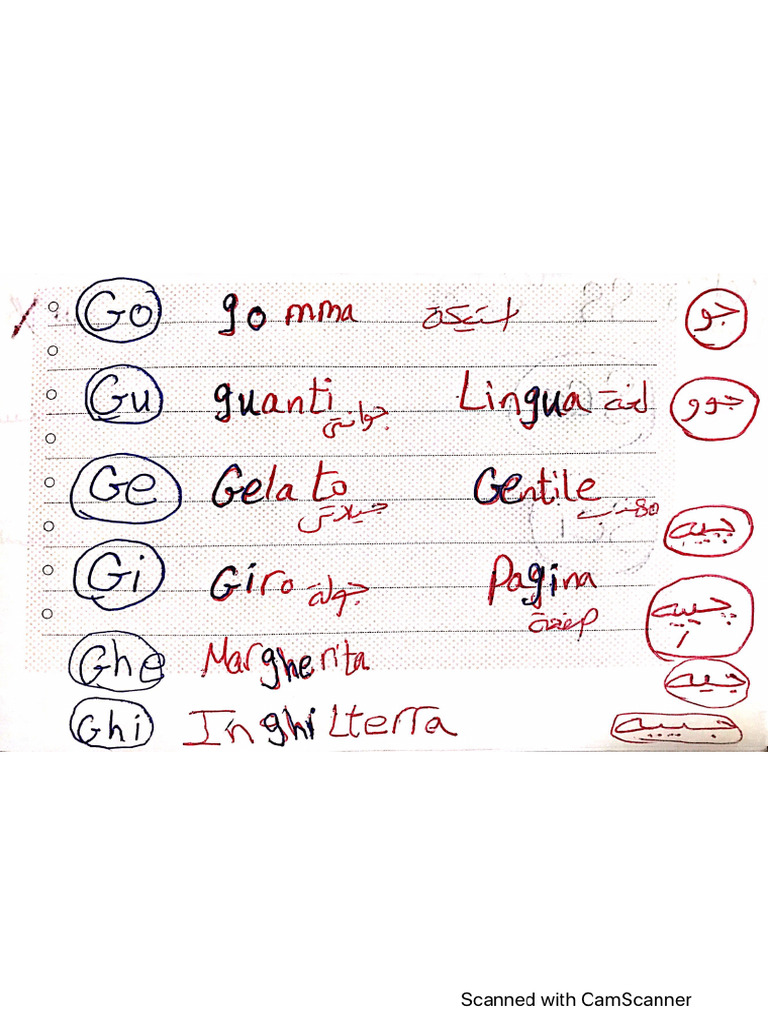 Go gomma استيكة جو
Gu guanti جوانتي Lingua لغة جوو
Ge Gelato جيلاتي Gentile مهذب جيه
Gi Giro جولة Pagina صفحة جيييه
Ghe Margherita جيه
Ghi Inghilterra جيييه
Scanned with CamScanner